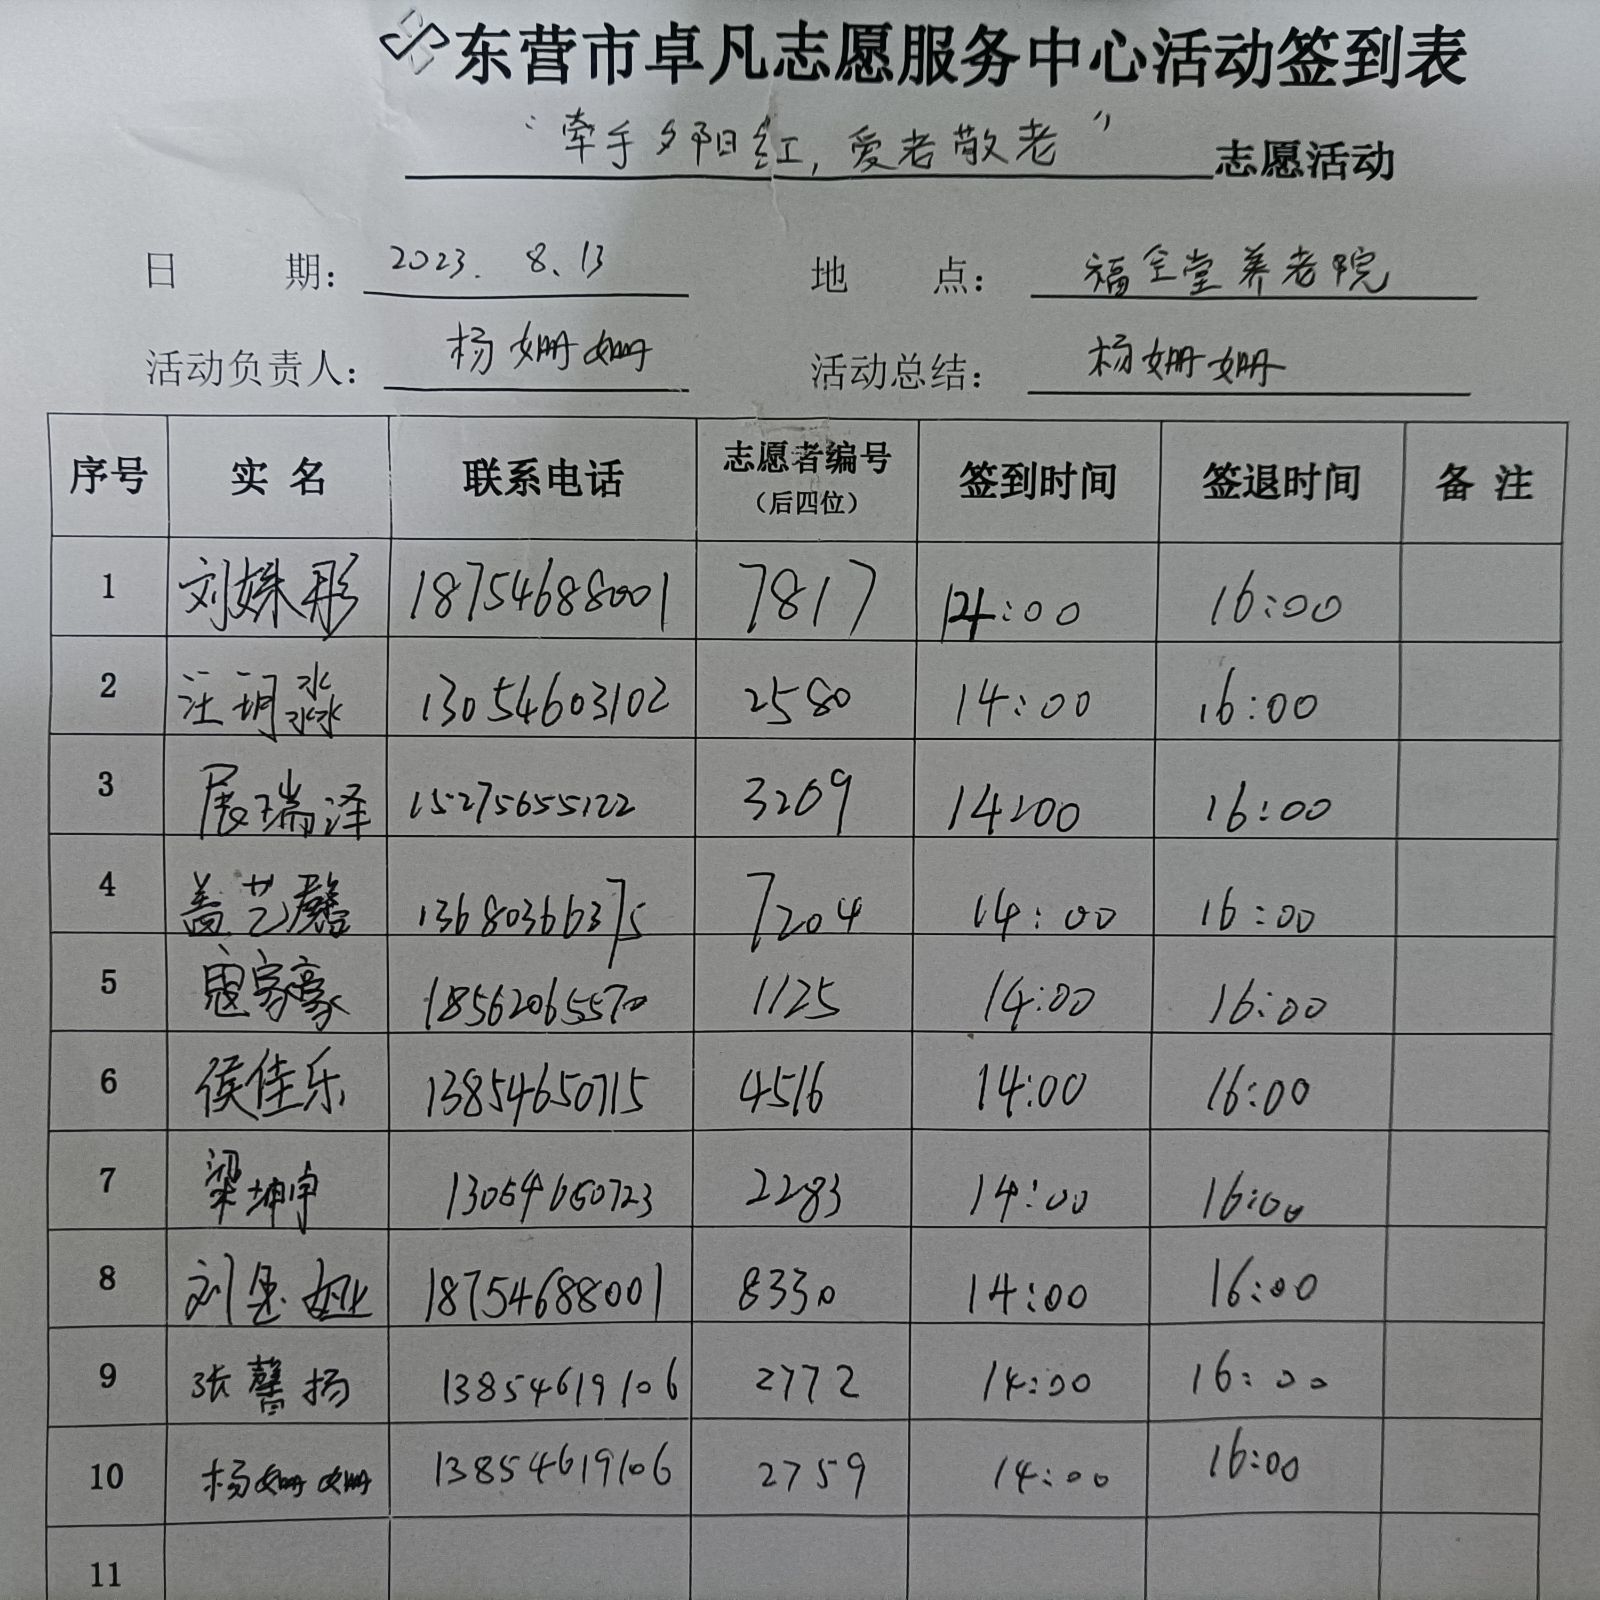 东营市卓凡志愿服务中心活动签到表
“牵手夕阳红，爱老敬老” 志愿活动
日 期： 2023. 8、13 地 点： 福全堂养老院
活动负责人： 杨姗姗 活动总结： 杨姗姗
序号 实 名 联系电话 志愿者编号（后四位） 签到时间 签退时间 备 注
1 刘姝彤 18754688001 7817 14:00 16:00
2 汪玥淼 13054603102 2580 14:00 16:00
3 展瑞泽 15275655122 3209 14:00 16:00
4 盖艺馨 13680366375 7204 14:00 16:00
5 寇家豪 18562065570 1125 14:00 16:00
6 侯佳乐 13854650715 4516 14:00 16:00
7 梁坤宇 13054650723 2283 14:00 16:00
8 刘 18754688001 8330 14:00 16:00
9 张馨扬 13854619106 2772 14:00 16:00
10 杨姗姗 13854619106 2759 14:00 16:00
11